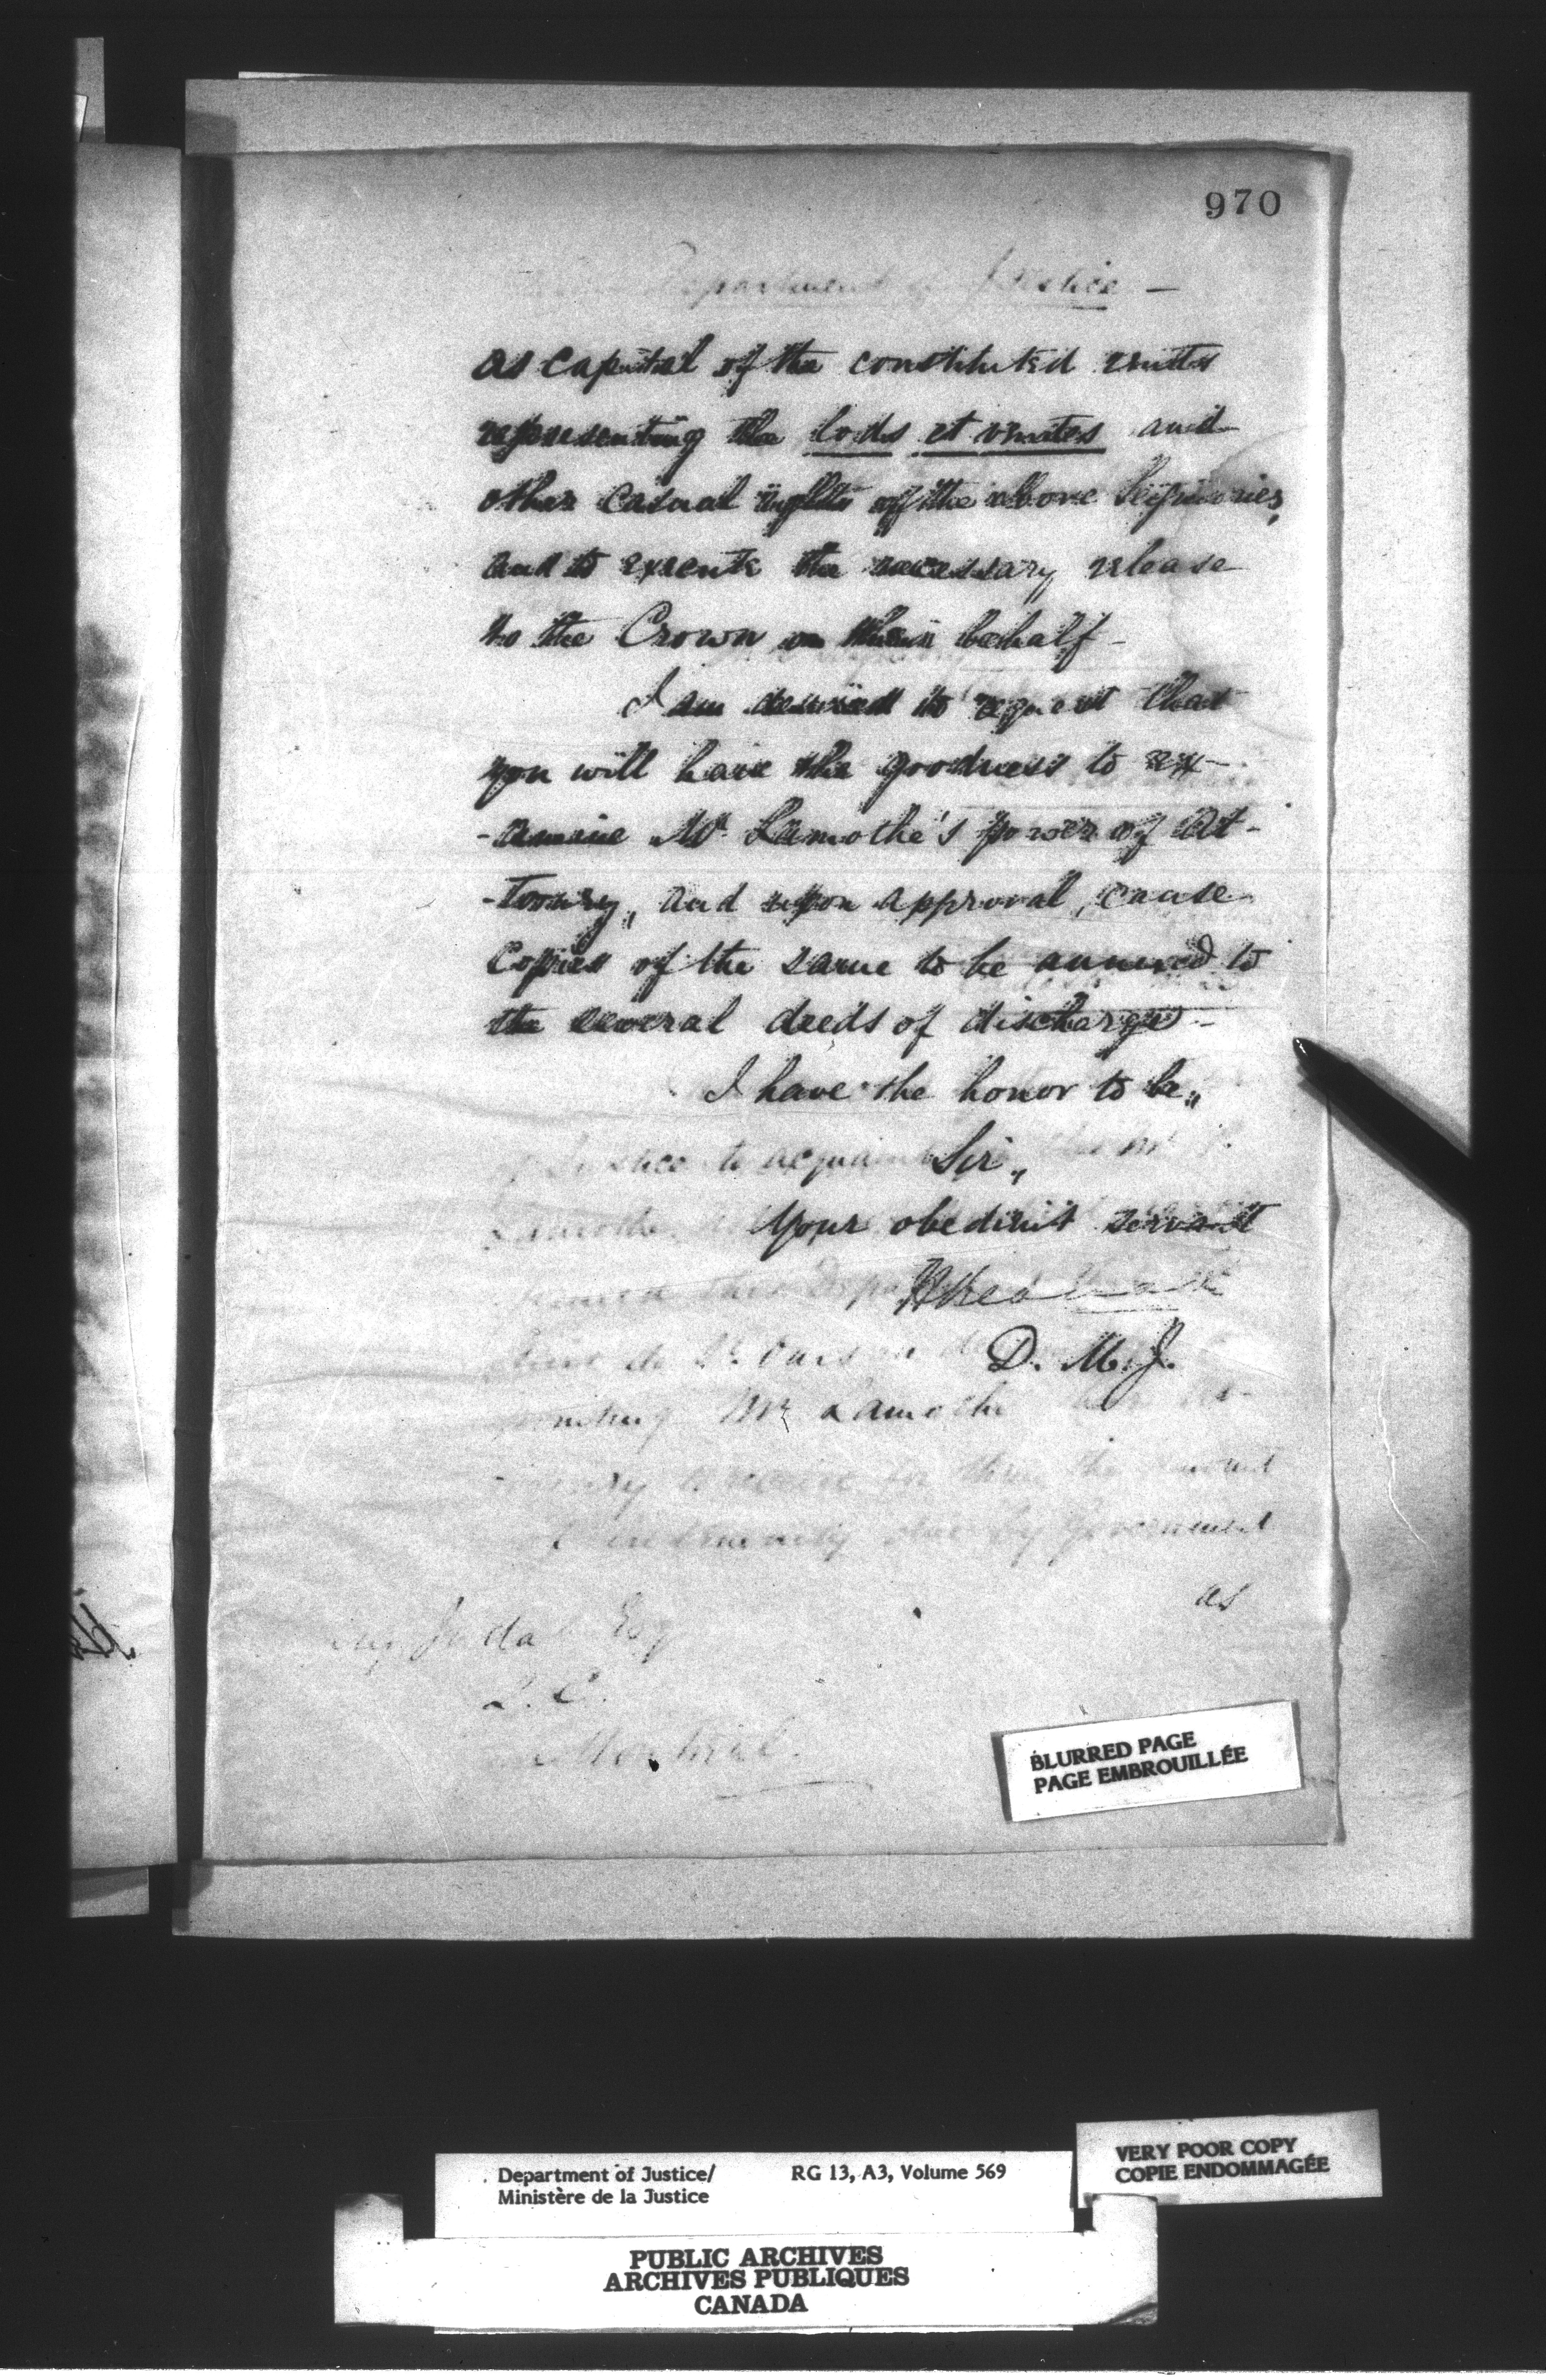 970
Department of Justice —
as capital of the constituted rentes
representing the lods et ventes and
other casual rights of the above Seigniories,
and to execute the necessary release
to the Crown on their behalf –
I am desired to request that
you will have the goodness to ex-
-amine Mr. Lamothe's power of At-
-torney, and upon approval, cause
Copies of the same to be annexed to
the several deeds of discharge –
I have the honor to be,
Justice to acquaint
Sir,
Lamothe
Your obedient servant
this Dep
D. M. J.
Mr Lamothe
to receive for them the amount
indemnity due by Government
as
Judah Esq
Q. C.
Montreal.
BLURRED PAGE
PAGE EMBROUILLÉE
VERY POOR COPY
COPIE ENDOMMAGÉE
Department of Justice/ RG 13, A3, Volume 569
Ministère de la Justice
PUBLIC ARCHIVES
ARCHIVES PUBLIQUES
CANADA